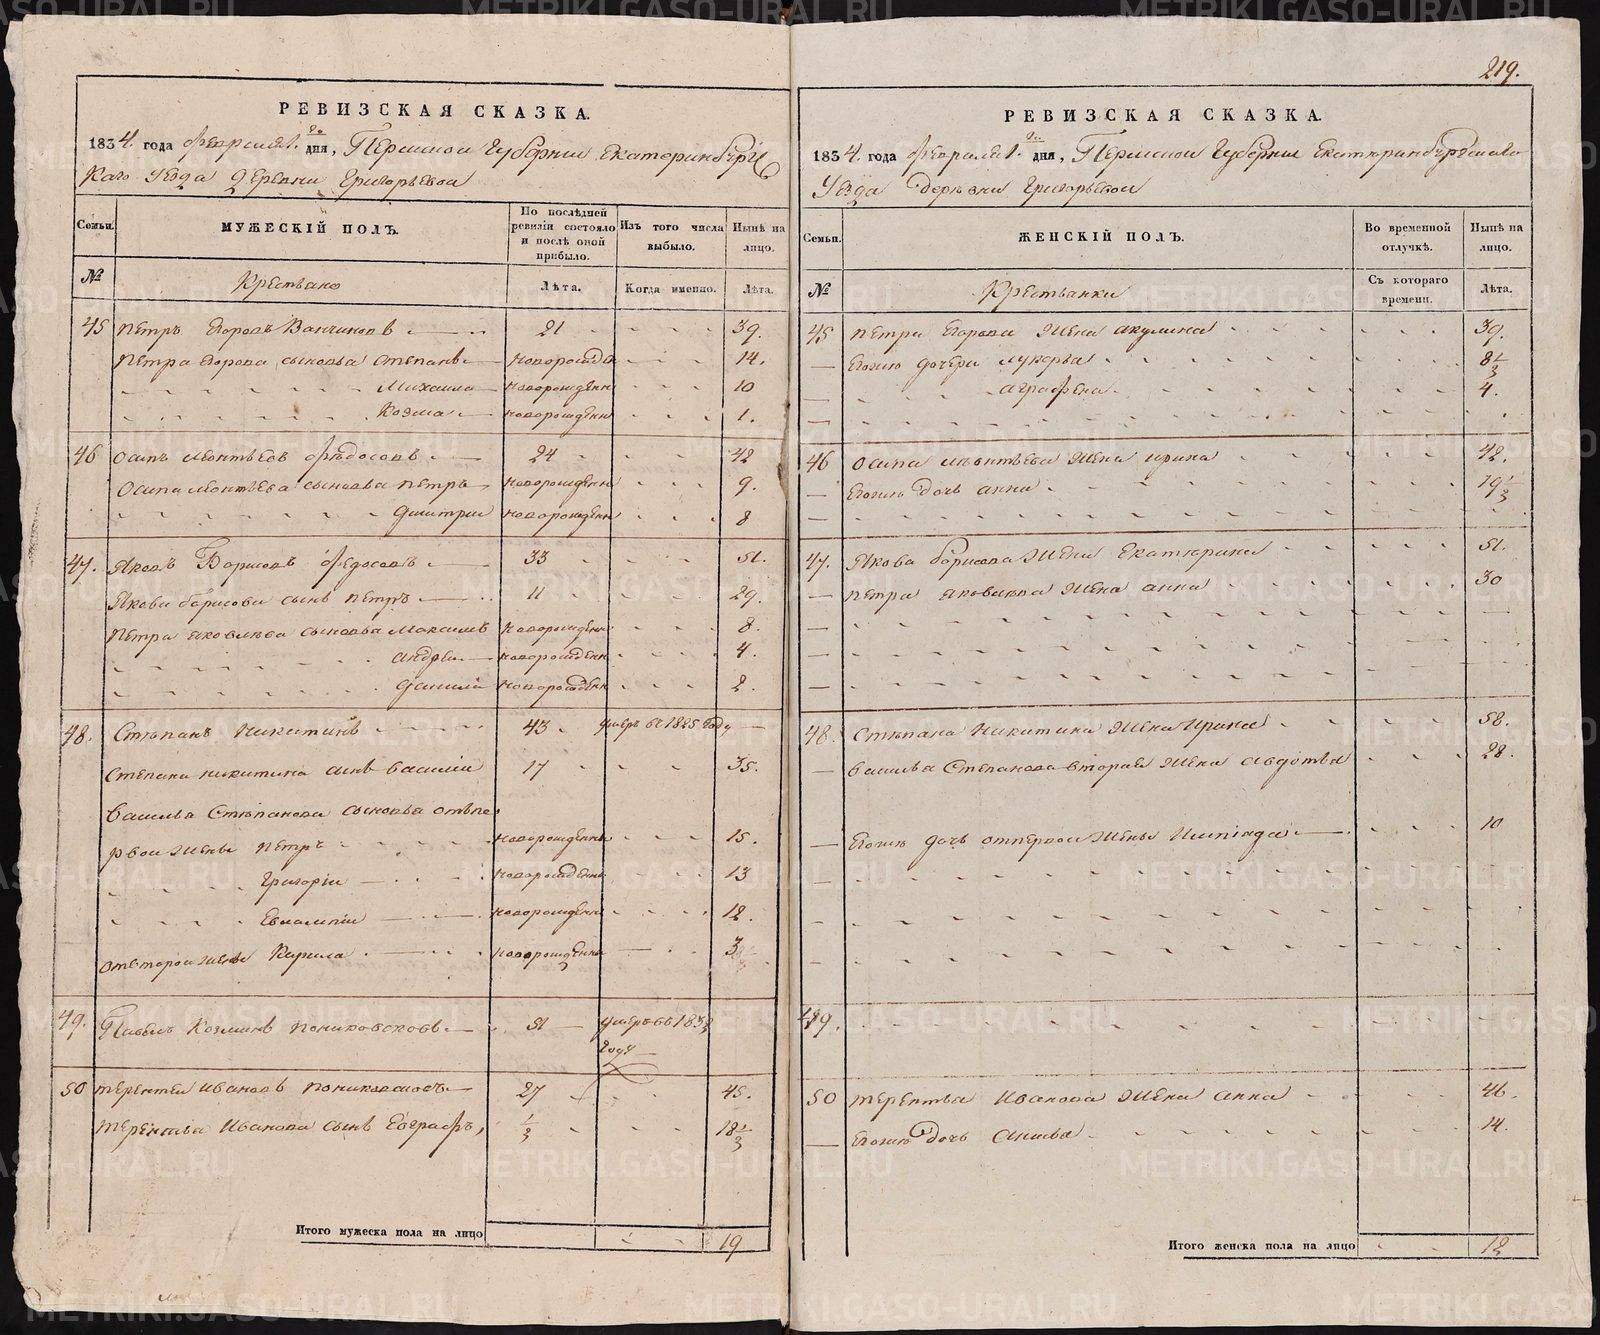 219.
РЕВИЗСКАЯ СКАЗКА.
1834 года февраля 1. го дня, Пермской Губернии Екатеринбургс
каго Уезда Деревни Григорьевой
Семьи.
МУЖЕСКІЙ ПОЛЪ.
По послѣдней ревизіи состояло и послѣ оной прибыло.
Изъ того числа выбыло.
Нынѣ на лицо.
№
Крестьяне
Лѣта.
Когда именно.
Лѣта.
45 Петръ Егоровъ 21 39.
Петра Егорова сыновья Степанъ новорожден 14.
Михаила новорожденн 10
Козма новорожденн 1.
46 Осипъ Леонтьевъ Федосовъ 24 42
Осипа Леонтьева сыновья Петръ новорожденн 9.
Дмитрии новорожденн 8
47. Яковъ Борисовъ Федосовъ 33 51.
Якова Борисова сынъ Петръ 11 29.
Петра Яковлева сыновья Максимъ новорожденн 8.
Андреи новорожденн 4.
Данила новорожденн 2.
48. Степанъ Никитинъ 43 умеръ въ 1825 году
Степана Никитина сынъ Василии 17 35.
Василья Степанова сыновья отъ пе
рвои жены Петръ новорожденны 15.
Григории новорожденны 13
Евлампии новорожденны 12.
отъ второи жены Кирила новорожденны 3
49. Павелъ Козминъ 51 умеръ въ 183
году
50 Терентеи Ивановъ 27 45.
Терентья Иванова сынъ Евграфъ, 1/2 18 1/2
Итого мужеска пола на лицо 19
РЕВИЗСКАЯ СКАЗКА.
1834 года февраля 1. го дня, Пермской Губернии Екатеринбургскаго
Уезда Деревни Григорьевой
Семьи.
ЖЕНСКІЙ ПОЛЪ.
Во временной отлучкѣ.
Нынѣ на лицо.
№
Крестьянки
Съ котораго времени.
Лѣта.
45 Петра Егорова жена Акулина 39.
Егожъ дочери Лукерья 8 1/2
Аграфена 4.
46 Осипа Леонтьева жена Ирина 42.
Егожъ дочь Анна 19 1/2
47. Якова Борисова жена Екатерина 51.
Петра Яковлева жена Анна 30
48. Степана Никитина жена Ирина 58.
Василья Степанова вторая жена Авдотья 28.
Егожъ дочь от первои жены 10
49.
50 Терентья Иванова жена Анна 46.
Егожъ дочь 14.
Итого женска пола на лицо 12
METRIKI.GASO-URAL.RU